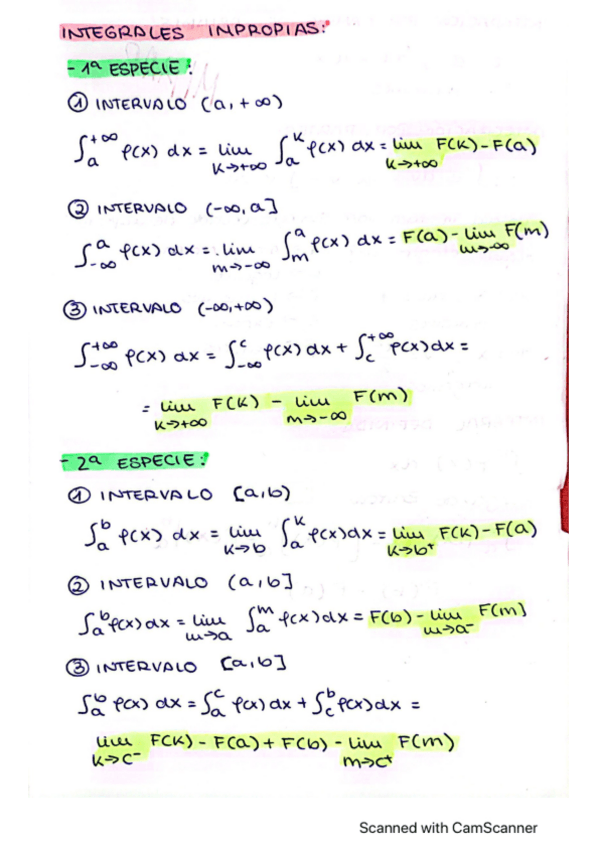 INTEGRALES IMPROPIAS:
- 1ª ESPECIE:
① INTERVALO (a, +∞)
∫ₐ^{+∞} f(x) dx = lim_{k→+∞} ∫ₐ^k f(x) dx = lim_{k→+∞} F(k) - F(a)
② INTERVALO (-∞, a]
∫_{-∞}^a f(x) dx = lim_{m→-∞} ∫_m^a f(x) dx = F(a) - lim_{m→-∞} F(m)
③ INTERVALO (-∞, +∞)
∫_{-∞}^{+∞} f(x) dx = ∫_{-∞}^c f(x) dx + ∫_c^{+∞} f(x) dx =
= lim_{k→+∞} F(k) - lim_{m→-∞} F(m)
- 2ª ESPECIE:
① INTERVALO [a, b)
∫ₐ^b f(x) dx = lim_{k→b} ∫ₐ^k f(x) dx = lim_{k→b⁺} F(k) - F(a)
② INTERVALO (a, b]
∫ₐ^b f(x) dx = lim_{m→a} ∫ₐ^m f(x) dx = F(b) - lim_{m→a⁻} F(m)
③ INTERVALO [a, b]
∫ₐ^b f(x) dx = ∫ₐ^c f(x) dx + ∫_c^b f(x) dx =
lim_{k→c⁻} F(k) - F(a) + F(b) - lim_{m→c⁺} F(m)
Scanned with CamScanner